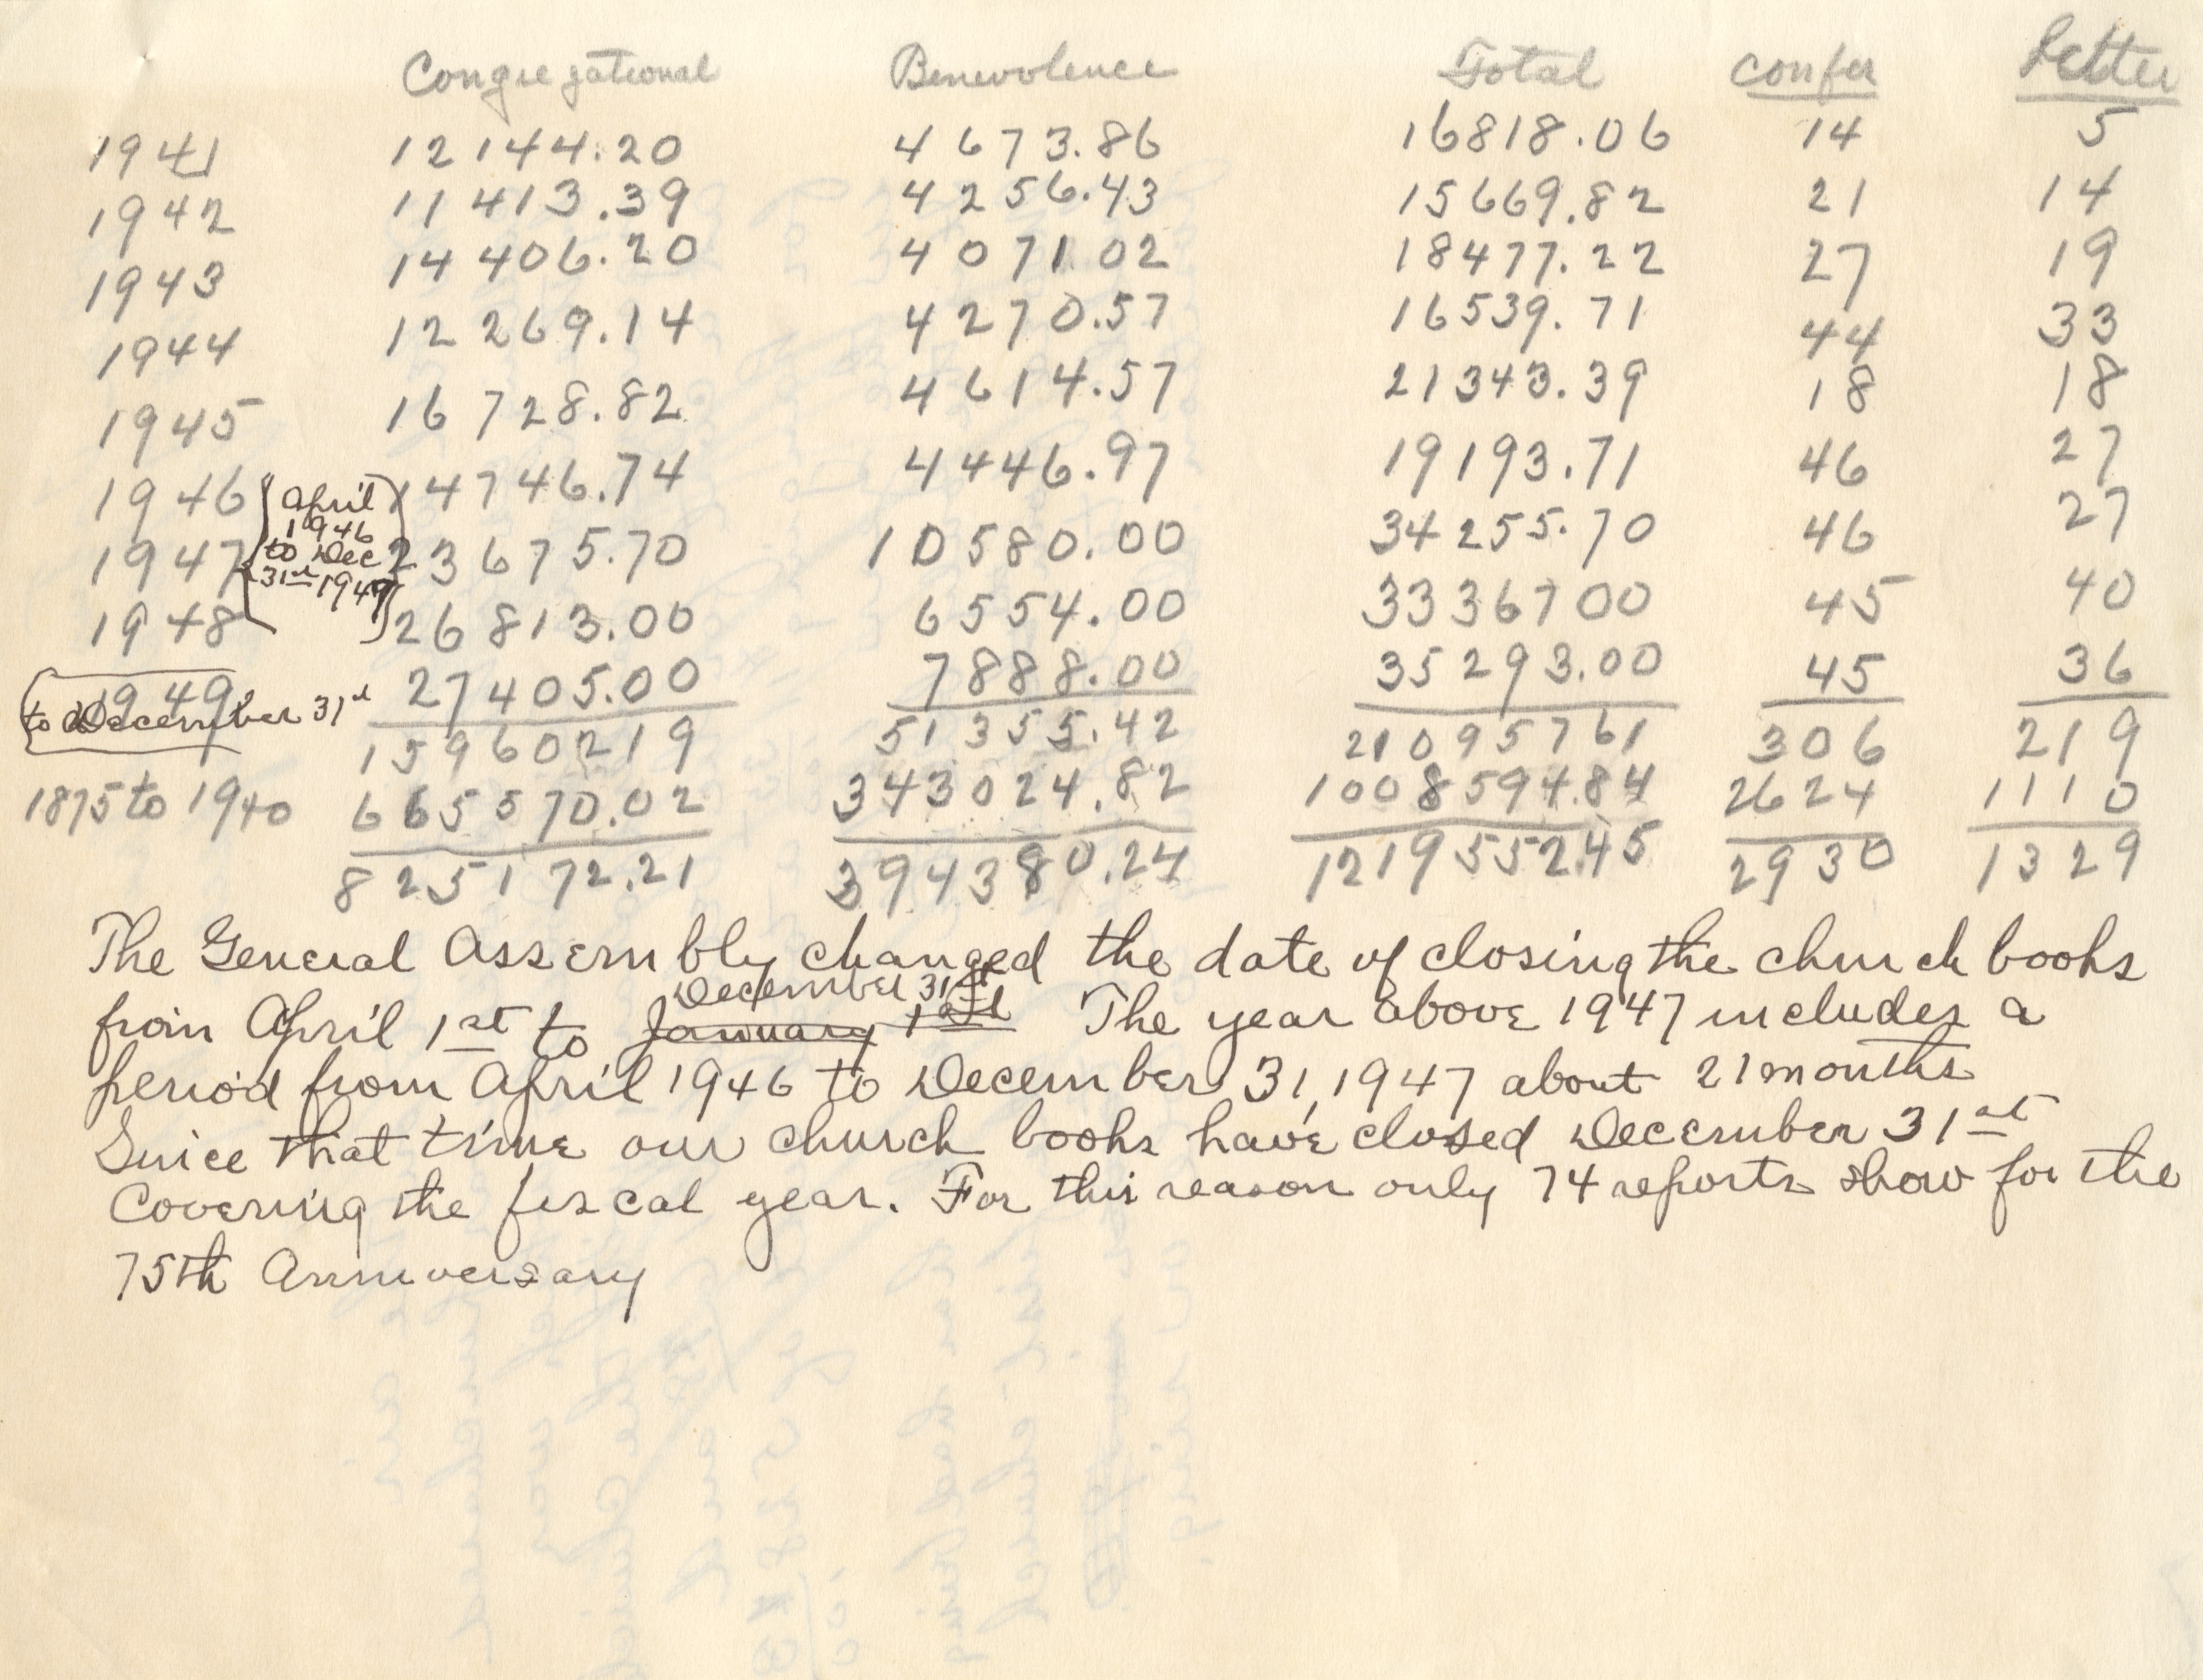 Congregational Benevolence Total confer Letter
1941 12144.20 4673.86 16818.06 14 5
1942 11413.39 4256.43 15669.82 21 14
1943 14406.20 4071.02 18477.22 27 19
1944 12269.14 4270.57 16539.71 44 33
1945 16728.82 4614.57 21343.39 18 18
1946 14746.74 4446.97 19193.71 46 27
April
1946
to Dec
31st 1947
1947 23675.70 10580.00 34255.70 46 27
1948 26813.00 6554.00 33367 00 45 40
1949 27405.00 7888.00 35293.00 45 36
to December 31st
15960219 51355.42 21095761 306 219
1875 to 1940 665570.02 343024.82 1008594.84 2624 1110
825172.21 394380.24 1219552.45 2930 1329
The General Assembly changed the date of closing the church books
December 31st
from April 1st to January 1st The year above 1947 includes a
period from April 1946 to December 31, 1947 about 21 months
Since that time our church books have closed December 31st
Covering the fiscal year. For this reason only 74 reports show for the
75th Anniversary